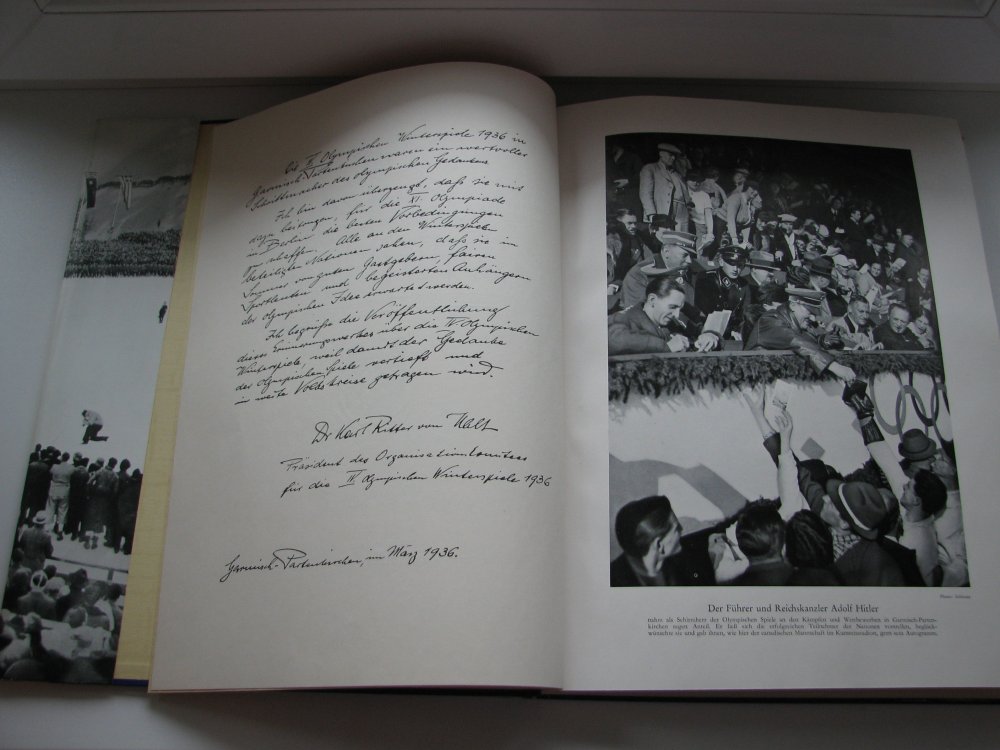 Die IV. Olympischen Winterspiele 1936 in
Garmisch-Partenkirchen waren ein wertvoller
Schrittmacher des olympischen Gedankens.
Ich bin davon überzeugt, daß sie mit
dazu beitragen, für die XI. Olympiade
in Berlin die besten Vorbedingungen
zu schaffen. Alle an den Winterspielen
beteiligten Nationen sahen, daß sie im
Sommer von guten Gastgebern, fairen
Sportleuten und begeisterten Anhängern
der olympischen Idee erwartet werden.
Ich begrüße die Veröffentlichung
dieses Erinnerungswerkes über die IV. Olympischen
Winterspiele, weil damit der Gedanke
der olympischen Spiele vertieft und
in weite Volkskreise getragen wird.
Dr Karl Ritter von Halt
Präsident des Organisationskomitees
für die IV. Olympischen Winterspiele 1936
Garmisch-Partenkirchen, im März 1936.
Der Führer und Reichskanzler Adolf Hitler
nahm als Schirmherr der Olympischen Spiele an den Kämpfen und Wettbewerben in Garmisch-Parten-
kirchen regen Anteil. Er ließ sich die erfolgreichen Teilnehmer der Nationen vorstellen, beglück-
wünschte sie und gab ihnen, wie hier der canadischen Mannschaft im Kunsteisstadion, gern sein Autogramm.